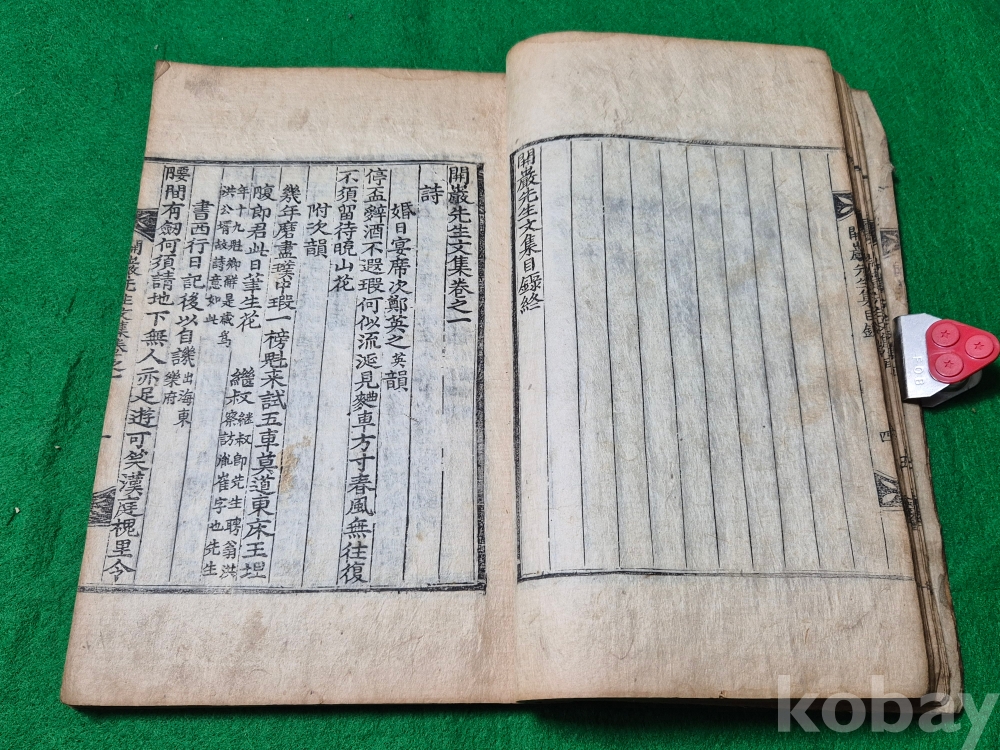 開巖先生文集目錄終
開巖先生文集卷之一
詩
婚日宴席次鄭英之英韻
停盃辭酒不遐瑕何似流涎見麯車方寸春風無往復
不須留待晩山花
附次韻
幾年磨盡璞中瑕一榜魁来試五車莫道東床王坦
腹郎君此日筆生花 繼叔繼叔卽先生聘翁洪
察訪胤崔字也先生
年十九魁鄕解是歲爲
洪公壻故詩意如此
書西行日記後以自譏出海東
樂府
腰間有劒何須請地下無人亦足遊可笑漢庭槐里令
開巖先生文集卷之一
一
四
五
kobay